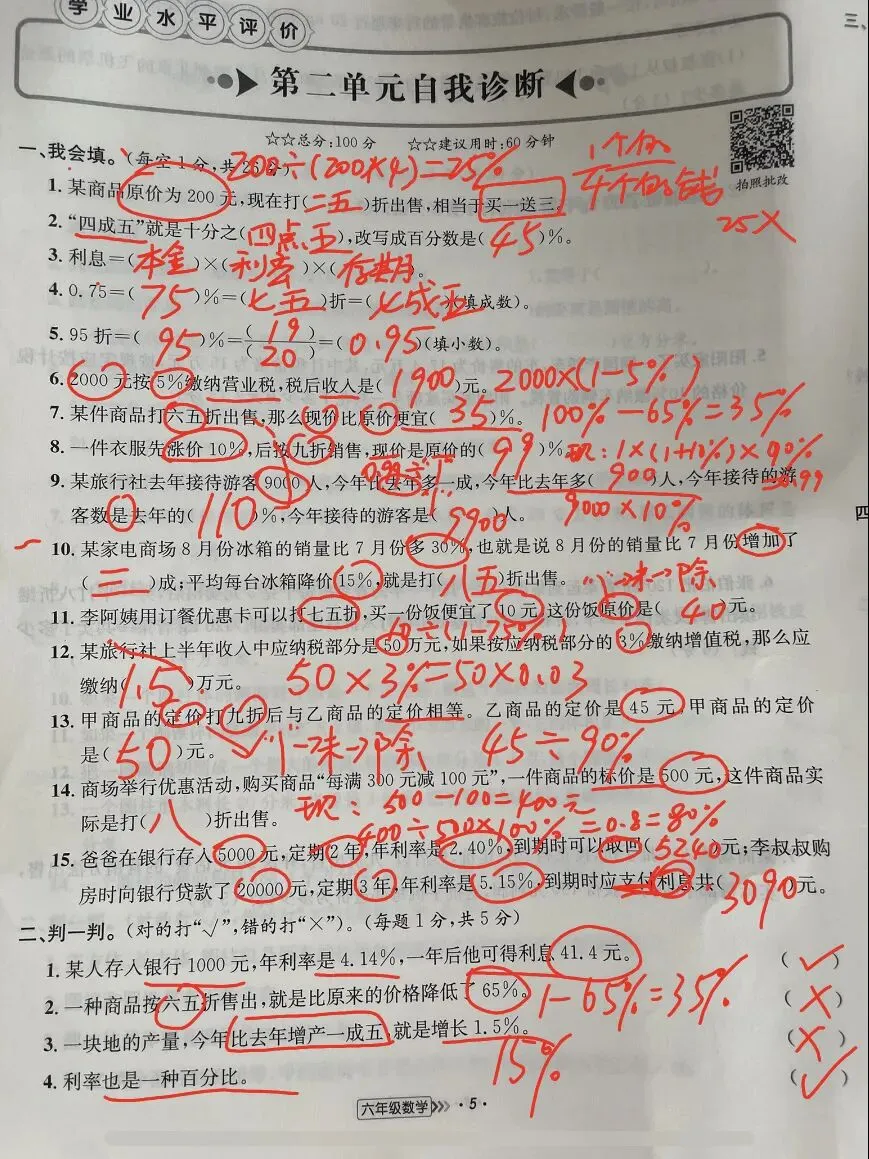 学业水平评价
第二单元自我诊断
☆☆总分:100分 ☆☆建议用时:60分钟
一、我会填。(每空1分,共26分)
200÷(200×4)=25%
1个价
4个价钱
拍照批改
1.某商品原价为200元,现在打(二五)折出售,相当于买一送三。
25×
2.“四成五”就是十分之(四点五),改写成百分数是(45)%。
3.利息=(本金)×(利率)×(存期)。
4.0.75=(75)%=(七五)折=(七成五)(填成数)。
5.95折=(95)%=(19/20)=(0.95)(填小数)。
6.2000元按5%缴纳营业税,税后收入是(1900)元。2000×(1-5%)
7.某件商品打六五折出售,那么现价比原价便宜(35)%。100%-65%=35%
8.一件衣服先涨价10%,后按九折销售,现价是原价的(99)%。现:1×(1+10%)×90%
=0.99
0.99÷1
9.某旅行社去年接待游客9000人,今年比去年多一成,今年比去年多(900)人,今年接待的游
客数是去年的(110)%,今年接待的游客是(9900)人。9000×10%
10.某家电商场8月份冰箱的销量比7月份多30%,也就是说8月份的销量比7月份增加了
(三)成;平均每台冰箱降价15%,就是打(八五)折出售。“1”→未→除
11.李阿姨用订餐优惠卡可以打七五折,买一份饭便宜了10元,这份饭原价是(40)元。
10÷(1-75%)
12.某旅行社上半年收入中应纳税部分是50万元,如果按应纳税部分的3%缴纳增值税,那么应
缴纳(1.5)万元。50×3%=50×0.03
13.甲商品的定价打九折后与乙商品的定价相等。乙商品的定价是45元,甲商品的定价
是(50)元。“1”→未→除 45÷90%
14.商场举行优惠活动,购买商品“每满300元减100元”,一件商品的标价是500元,这件商品实
现:500-100=400元
际是打(八)折出售。
400÷500×100%=0.8=80%
15.爸爸在银行存入5000元,定期2年,年利率是2.40%,到期时可以取回(5240)元;李叔叔购
房时向银行贷款了20000元,定期3年,年利率是5.15%,到期时应支付利息共(3090)元。
二、判一判。(对的打“√”,错的打“×”)。(每题1分,共5分)
1.某人存入银行1000元,年利率是4.14%,一年后他可得利息41.4元。 (√)
2.一种商品按六五折售出,就是比原来的价格降低了65%。1-65%=35% (×)
3.一块地的产量,今年比去年增产一成五,就是增长1.5%。 (×)
15%
4.利率也是一种百分比。 (√)
六年级数学 ·5·
三、
四